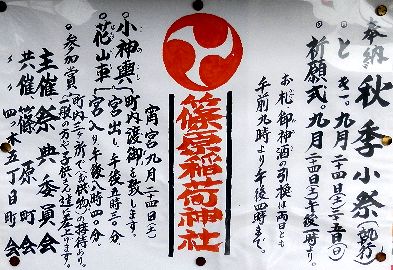 奉納 秋季小祭(執行)
と き 九月二十四日(土)二十五日(日)
祈願式 九月二十四日(土)午後一時より
お札、御神酒の引換は両日とも
午前九時より午後四時まで。
篠原稲荷神社
宵宮九月二十四日(土)
町内渡御を致します。
小神輿 宮出し 午後五時三〇分
花山車 宮入り 午後八時四〇分
参加賞 町内二ヶ所で(お供物)の接待あり。
主催 祭典委員会
共催 篠原町会
四ツ木五丁目町会